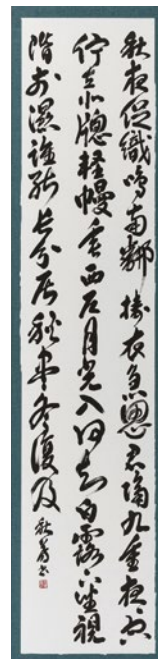 秋夜促織鳴南鄰擣衣急思君隔九重夜々空
佇立北牕輕幔垂西戶月光入何知白露下坐視
階前濕誰能長分居秋盡冬復及 秋書